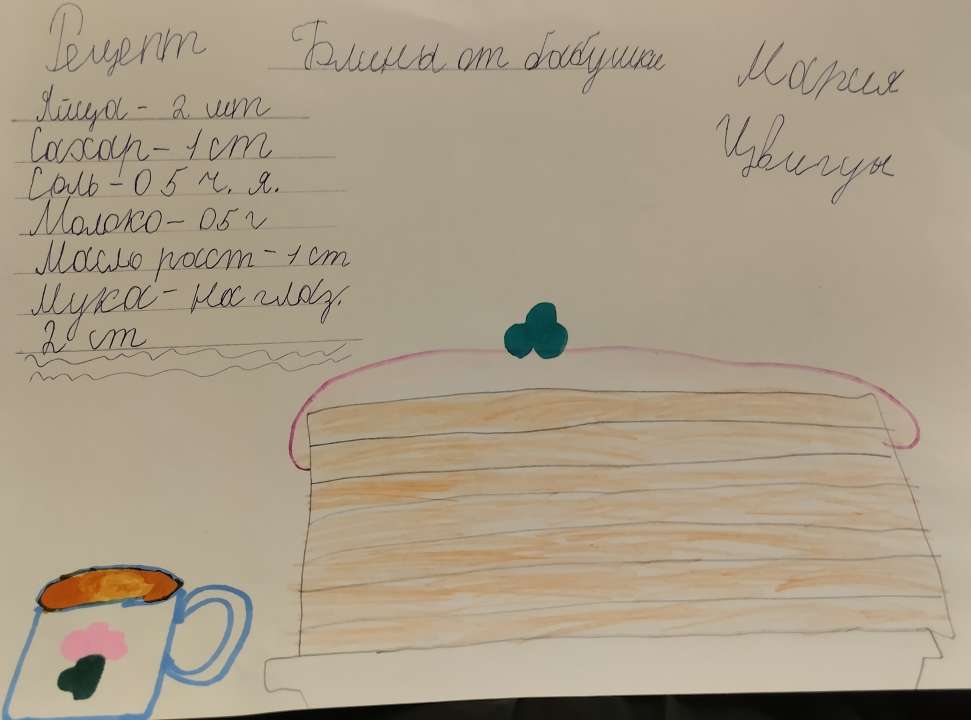 Рецепт
Блины от бабушки
Мария
Цвигун
Яйца - 2 шт
Сахар - 1 ст
Соль - 0 5 ч. л.
Молоко - 05 г
Масло раст - 1 ст
Мука - на глаз.
2 ст